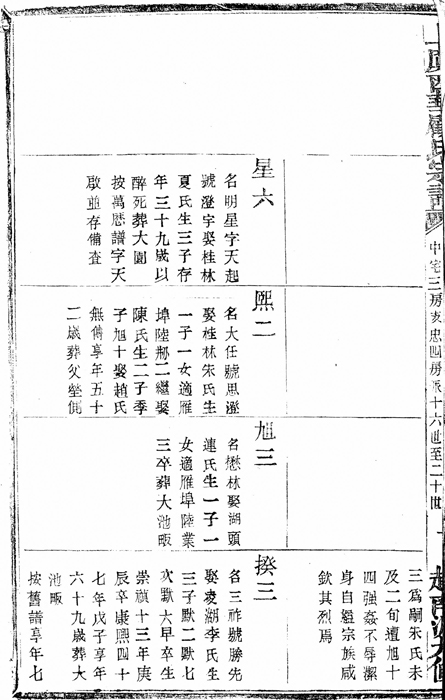 中宅三房亥忠四房派十六世至二十世
星六
名明星字天起
號澄宇娶桂林
夏氏生三子存
年三十九歲以
醉死葬大園
按萬歷譜字天
啟並存備查
熙二
名大任號思澄
娶桂林朱氏生
一子一女適雁
埠陸鄰二繼娶
陳氏生二子季
子旭十娶趙氏
無傳享年五十
二歲葬父塋側
旭三
名懋林娶湖頭
連氏生一子一
女適雁埠陸業
三卒葬大池畈
揆三
名三祚號勝先
娶凌湖李氏生
三子默二默七
次默六早卒生
崇禎十三年庚
辰卒康熙四十
七年戊子享年
六十九歲葬大
池畈
按舊譜享年七
三為嗣朱氏未
及二旬遭旭十
四強姦不辱潔
身自縊宗族咸
欽其烈焉